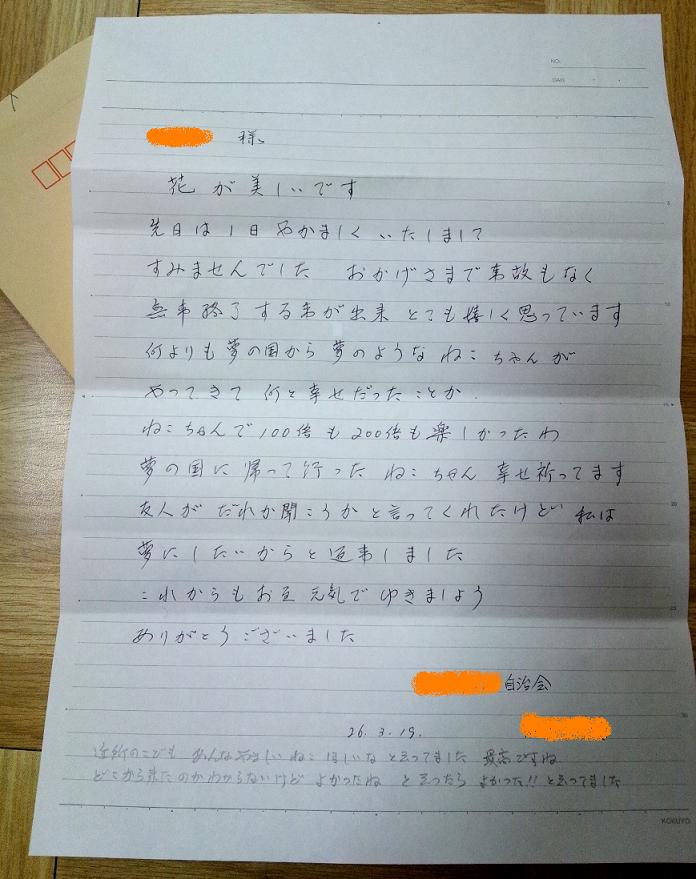 NO.
DATE
様
花が美しいです
先日は1日やかましくいたしまして
すみませんでした おかげさまで事故もなく
無事終了する事が出来 とても嬉しく思っています
何よりも夢の国から夢のようなねこちゃんが
やってきて何と幸せだったことか.
ねこちゃんで100倍も200倍も楽しかったわ
夢の国に帰って行った ねこちゃん 幸せ祈ってます
友人が だれか聞こうかと言ってくれたけど 私は
夢にしたいからと返事しました
これからもお互 元気でゆきましょう
ありがとうございました
自治会
26.3.19.
近所のこども あんなやさしい ねこ ほしいな と云ってました 最高ですね
どこから来たのかわからないけど よかったね と云ったら よかった!! と云ってました
KOKUYO